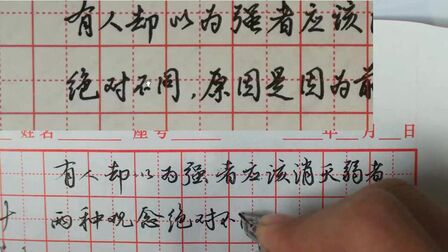 有人却以为强者应该
绝对不同,原因是因为前
姓名 座号 年 月 日
有人却以为强者应该消灭弱者
两种观念绝对不